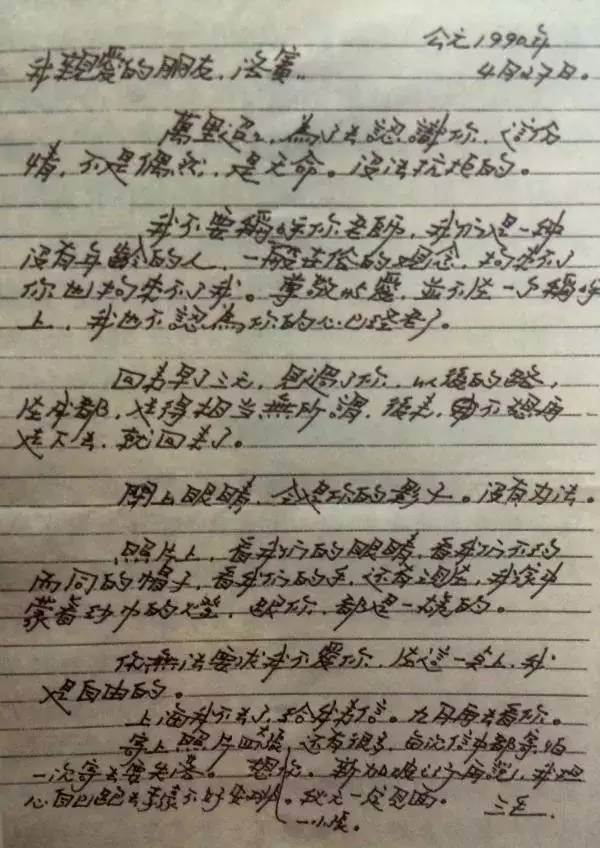 公元1990年
4月27日。
我親愛的朋友,洛賓:
萬里迢迢,為了去認識你,這份
情,不是偶然,是天命。沒法抗拒的。
我不要稱呼你老師,我們是一種
沒有年齡的人,一般世俗的觀念,拘束不了
你也拘束不了我。尊敬與愛,並不在一個稱呼
上,我也不認為你的心已經老了。
回來早了三天,見過了你,以後的路,
在成都,走得相當無所謂,後來,不想再
走下去,就回來了。
閉上眼睛,全是你的影子。沒有辦法。
照片上,看我們的眼睛,看我們不約
而同的帽子,看我們的手,還有現在,我家中
蒙着紗巾的燈,跟你,都是一樣的。
你無法要求我不愛你,在這一點上,我
是自由的。
上海我不去了,給我來信。九月再去看你。
寄上照片四張,還有很多,每次信中都寄,怕
一次寄去要失落。想你。新加坡之行再說,我担
心自己跑去手續不好安排。秋天一定見面。
三毛
一小張。